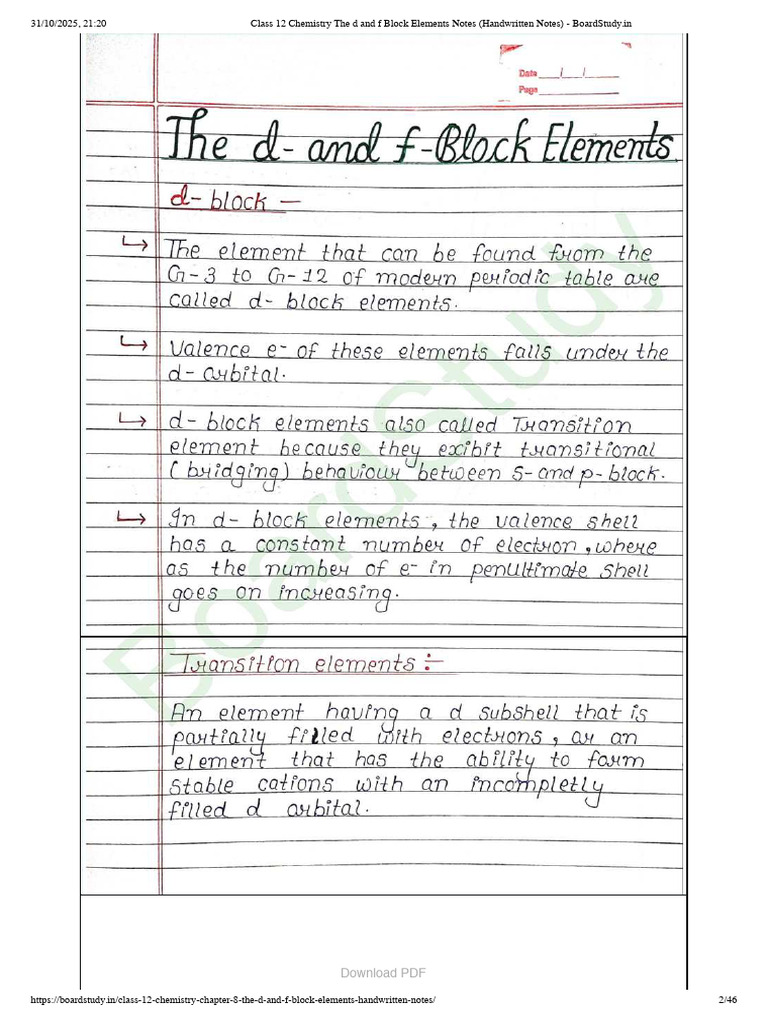 31/10/2025, 21:20 Class 12 Chemistry The d and f Block Elements Notes (Handwritten Notes) - BoardStudy.in
Date __/__/__
Page
The d- and f-Block Elements
d-block —
↳ The element that can be found from the
G-3 to G-12 of modern periodic table are
called d- block elements.
↳ Valence e- of these elements falls under the
d-orbital.
↳ d-block elements also called Transition
element because they exibit transitional
(bridging) behaviour between s-and p-block.
↳ In d-block elements, the valence shell
has a constant number of electron, where
as the number of e- in penultimate shell
goes on increasing.
Transition elements :-
An element having a d subshell that is
partially filled with electrons, or an
element that has the ability to form
stable cations with an incompletly
filled d orbital.
BoardStudy
Download PDF
https://boardstudy.in/class-12-chemistry-chapter-8-the-d-and-f-block-elements-handwritten-notes/ 2/46